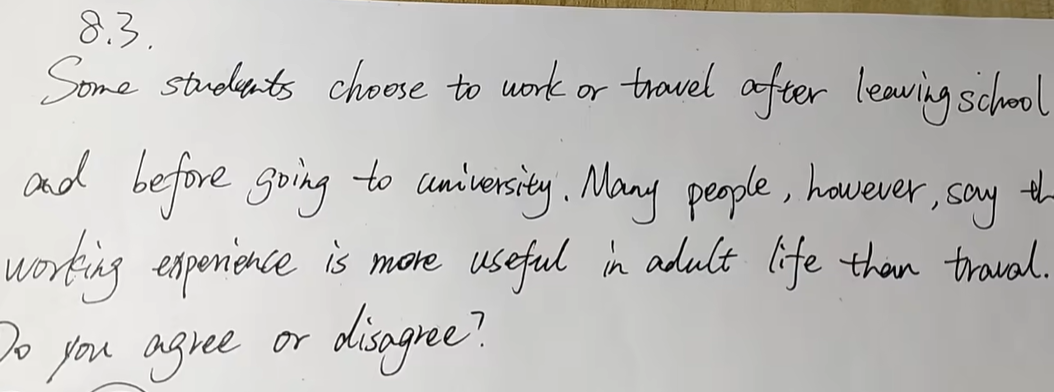 8.3.
Some students choose to work or travel after leaving school
and before going to university. Many people, however, say th
working experience is more useful in adult life than traval.
Do you agree or disagree?